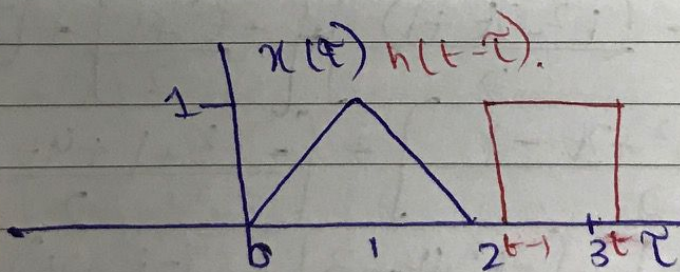 x(τ) h(t-τ).
1
0 1 2 t-1 3 t τ